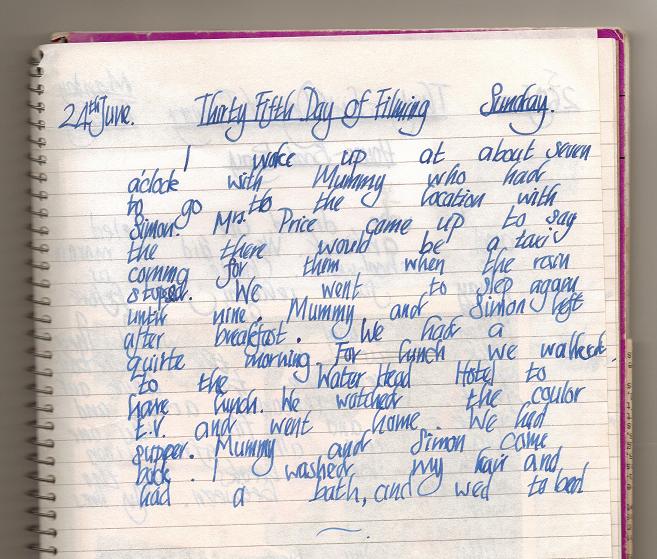 24th June. Thirty Fifth Day of Filming Sunday.
I woke up at about seven
o'clock with Mummy who had
to go to the location with
Simon. Mrs. Price came up to say
the there would be a taxi
coming for them when the rain
stopped. We went to slep aggen
until nine. Mummy and Simon left
after breakfast. We had a
quirte morning For lunch we walked
to the Water Head Hotel to
have lunch. We watched the coulor
t.v. and went home. We had
supper. Mummy and Simon came
back. I washed my hair and
had a bath, and wed to bed